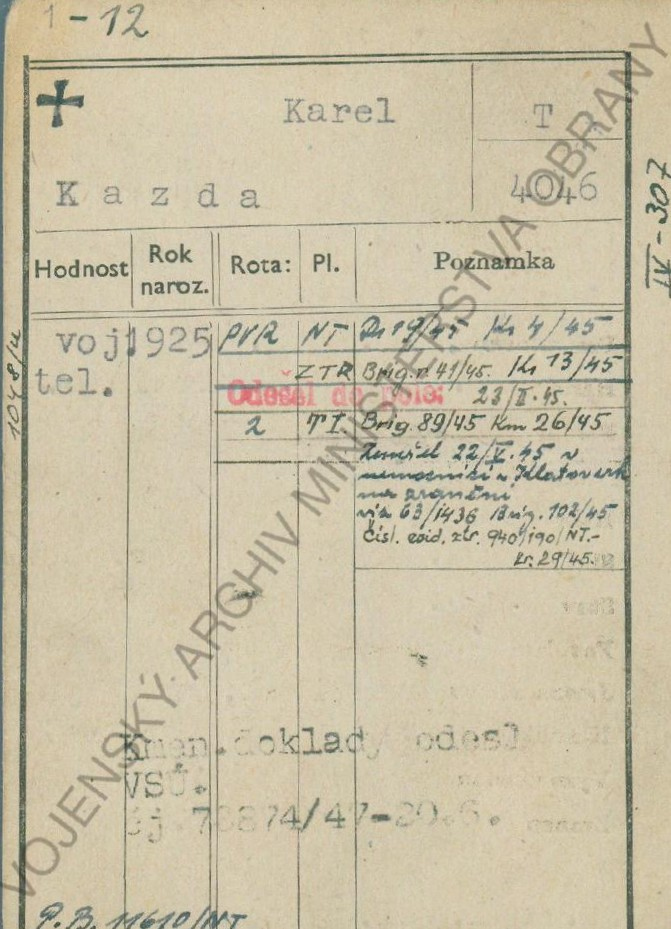 1-12
Karel
T
Kazda
4046
IV-307
Hodnost
Rok naroz.
Rota:
Pl.
Poznamka
voj
1925
PVR
NT
Dr 19/45 Kr 4/45
tel.
ZTR
Brig. r. 41/45. Kr 13/45
Odešel do pole:
23/II.45.
2
TI
Brig. 89/45 Km 26/45
Zemřel 22/V.45 v
nemocnici v Klatovech
na zranění
viz 63/1436 Brig. 102/45
Čísl. evid. ztr. 940/190/NT.-
kr. 29/45.
1048/4
Kmen.doklady odesl
VSÚ.
čj.78874/47-20.6.
P.B. 11610/NT
VOJENSKÝ ARCHIV MINISTERSTVA OBRANY